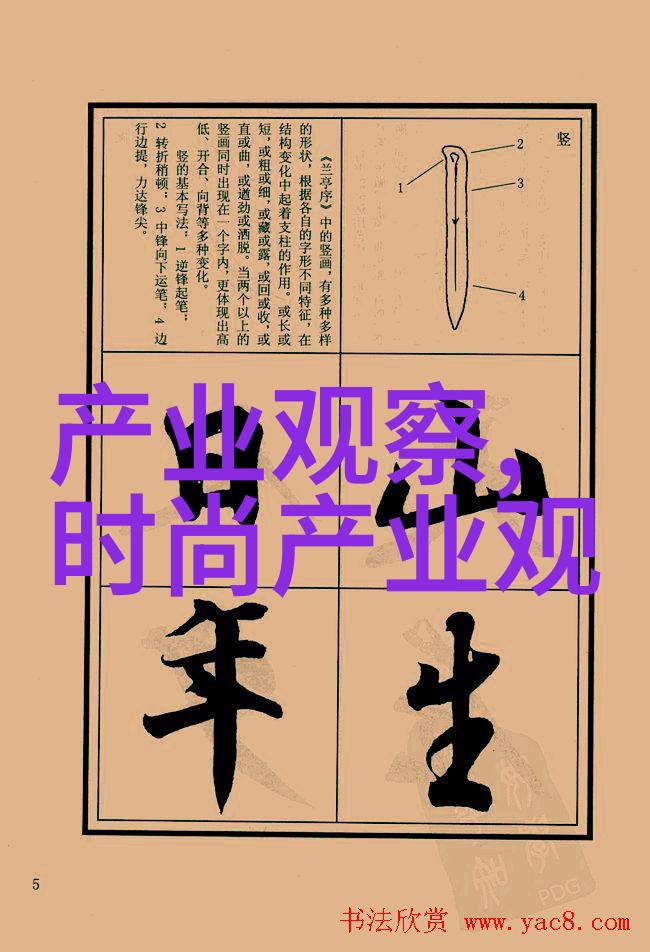 竖
1
2
3
4
《兰亭序》中的竖画，有多种多样
的形状，根据各自的字形不同特征，在
结构变化中起着支柱的作用。或长或
短，或粗或细，或藏或露，或回或收，或
直或曲，或遒劲或洒脱。当两个以上的
竖画同时出现在一个字内，更体现出高
低、开合、向背等多种变化。
竖的基本写法：1 逆锋起笔；
2 转折稍顿；3 中锋向下运笔；4 边
行边提，力达锋尖。
产业观察，
时尚产业观
山
日
生
年
5
PDG
书法欣赏 www.yac8.com